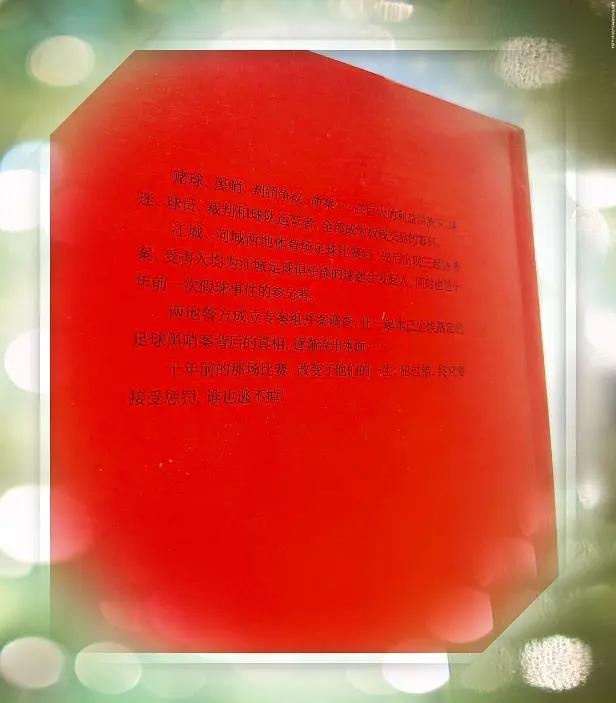 赌球、黑哨、判罚争议、命案……在巨大的利益链条下,球
迷、球员、裁判和球队运营者,全部成为权钱交易的筹码。
江城、河城两地体育场足球比赛后,先后出现三起凶杀
案,受害人均为江城足球俱乐部的球迷会发起人,同时也是十
年前一次假球事件的参与者。
两地警方成立专案组并案调查,让一起本已尘埃落定的
足球黑哨案背后的真相,逐渐浮出水面……
十年前的那场比赛,改变了他们的一生;犯过错,终究要
接受惩罚,谁也逃不掉!